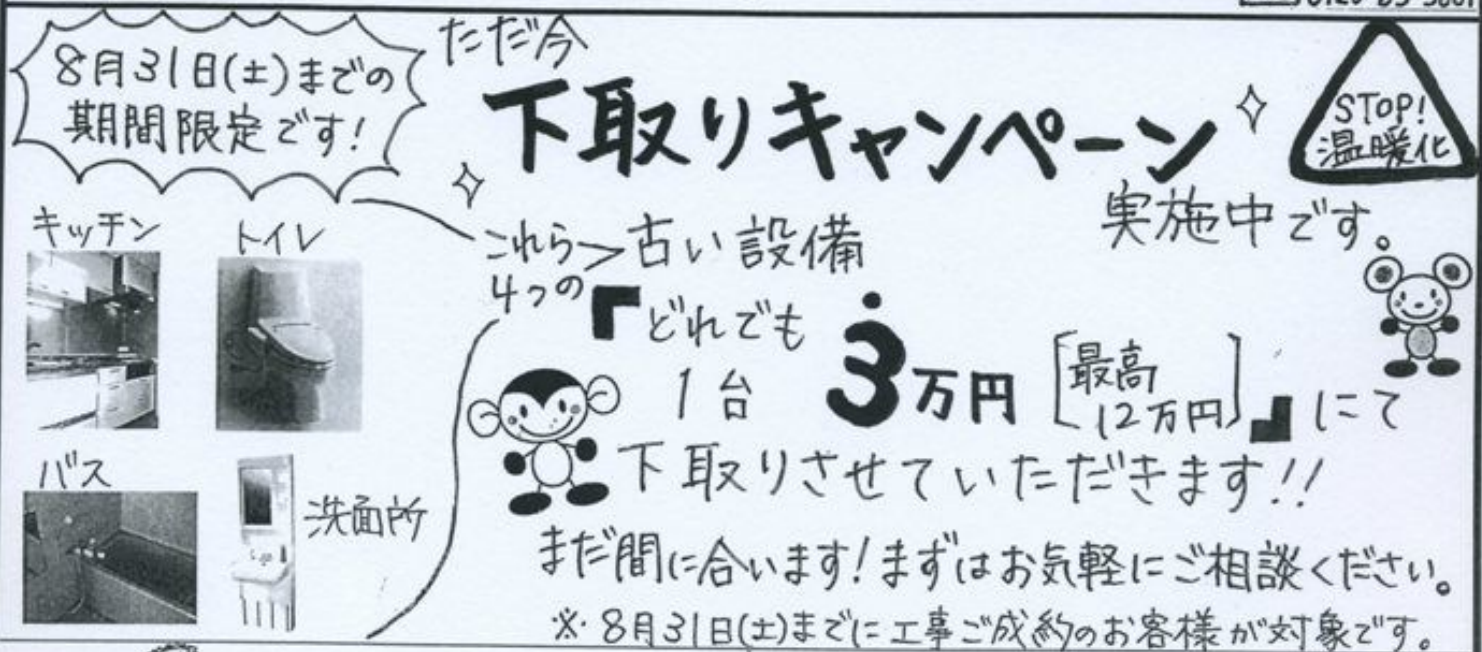 8月31日(土)までの
期間限定です!
ただ今
下取りキャンペーン
実施中です。
STOP!
温暖化
キッチン
トイレ
バス
洗面所
これら
4つの
古い設備
『どれでも
1台 3万円 [最高
12万円]』にて
下取りさせていただきます!!
まだ間に合います!まずはお気軽にご相談ください。
※8月31日(土)までに工事ご成約のお客様が対象です。